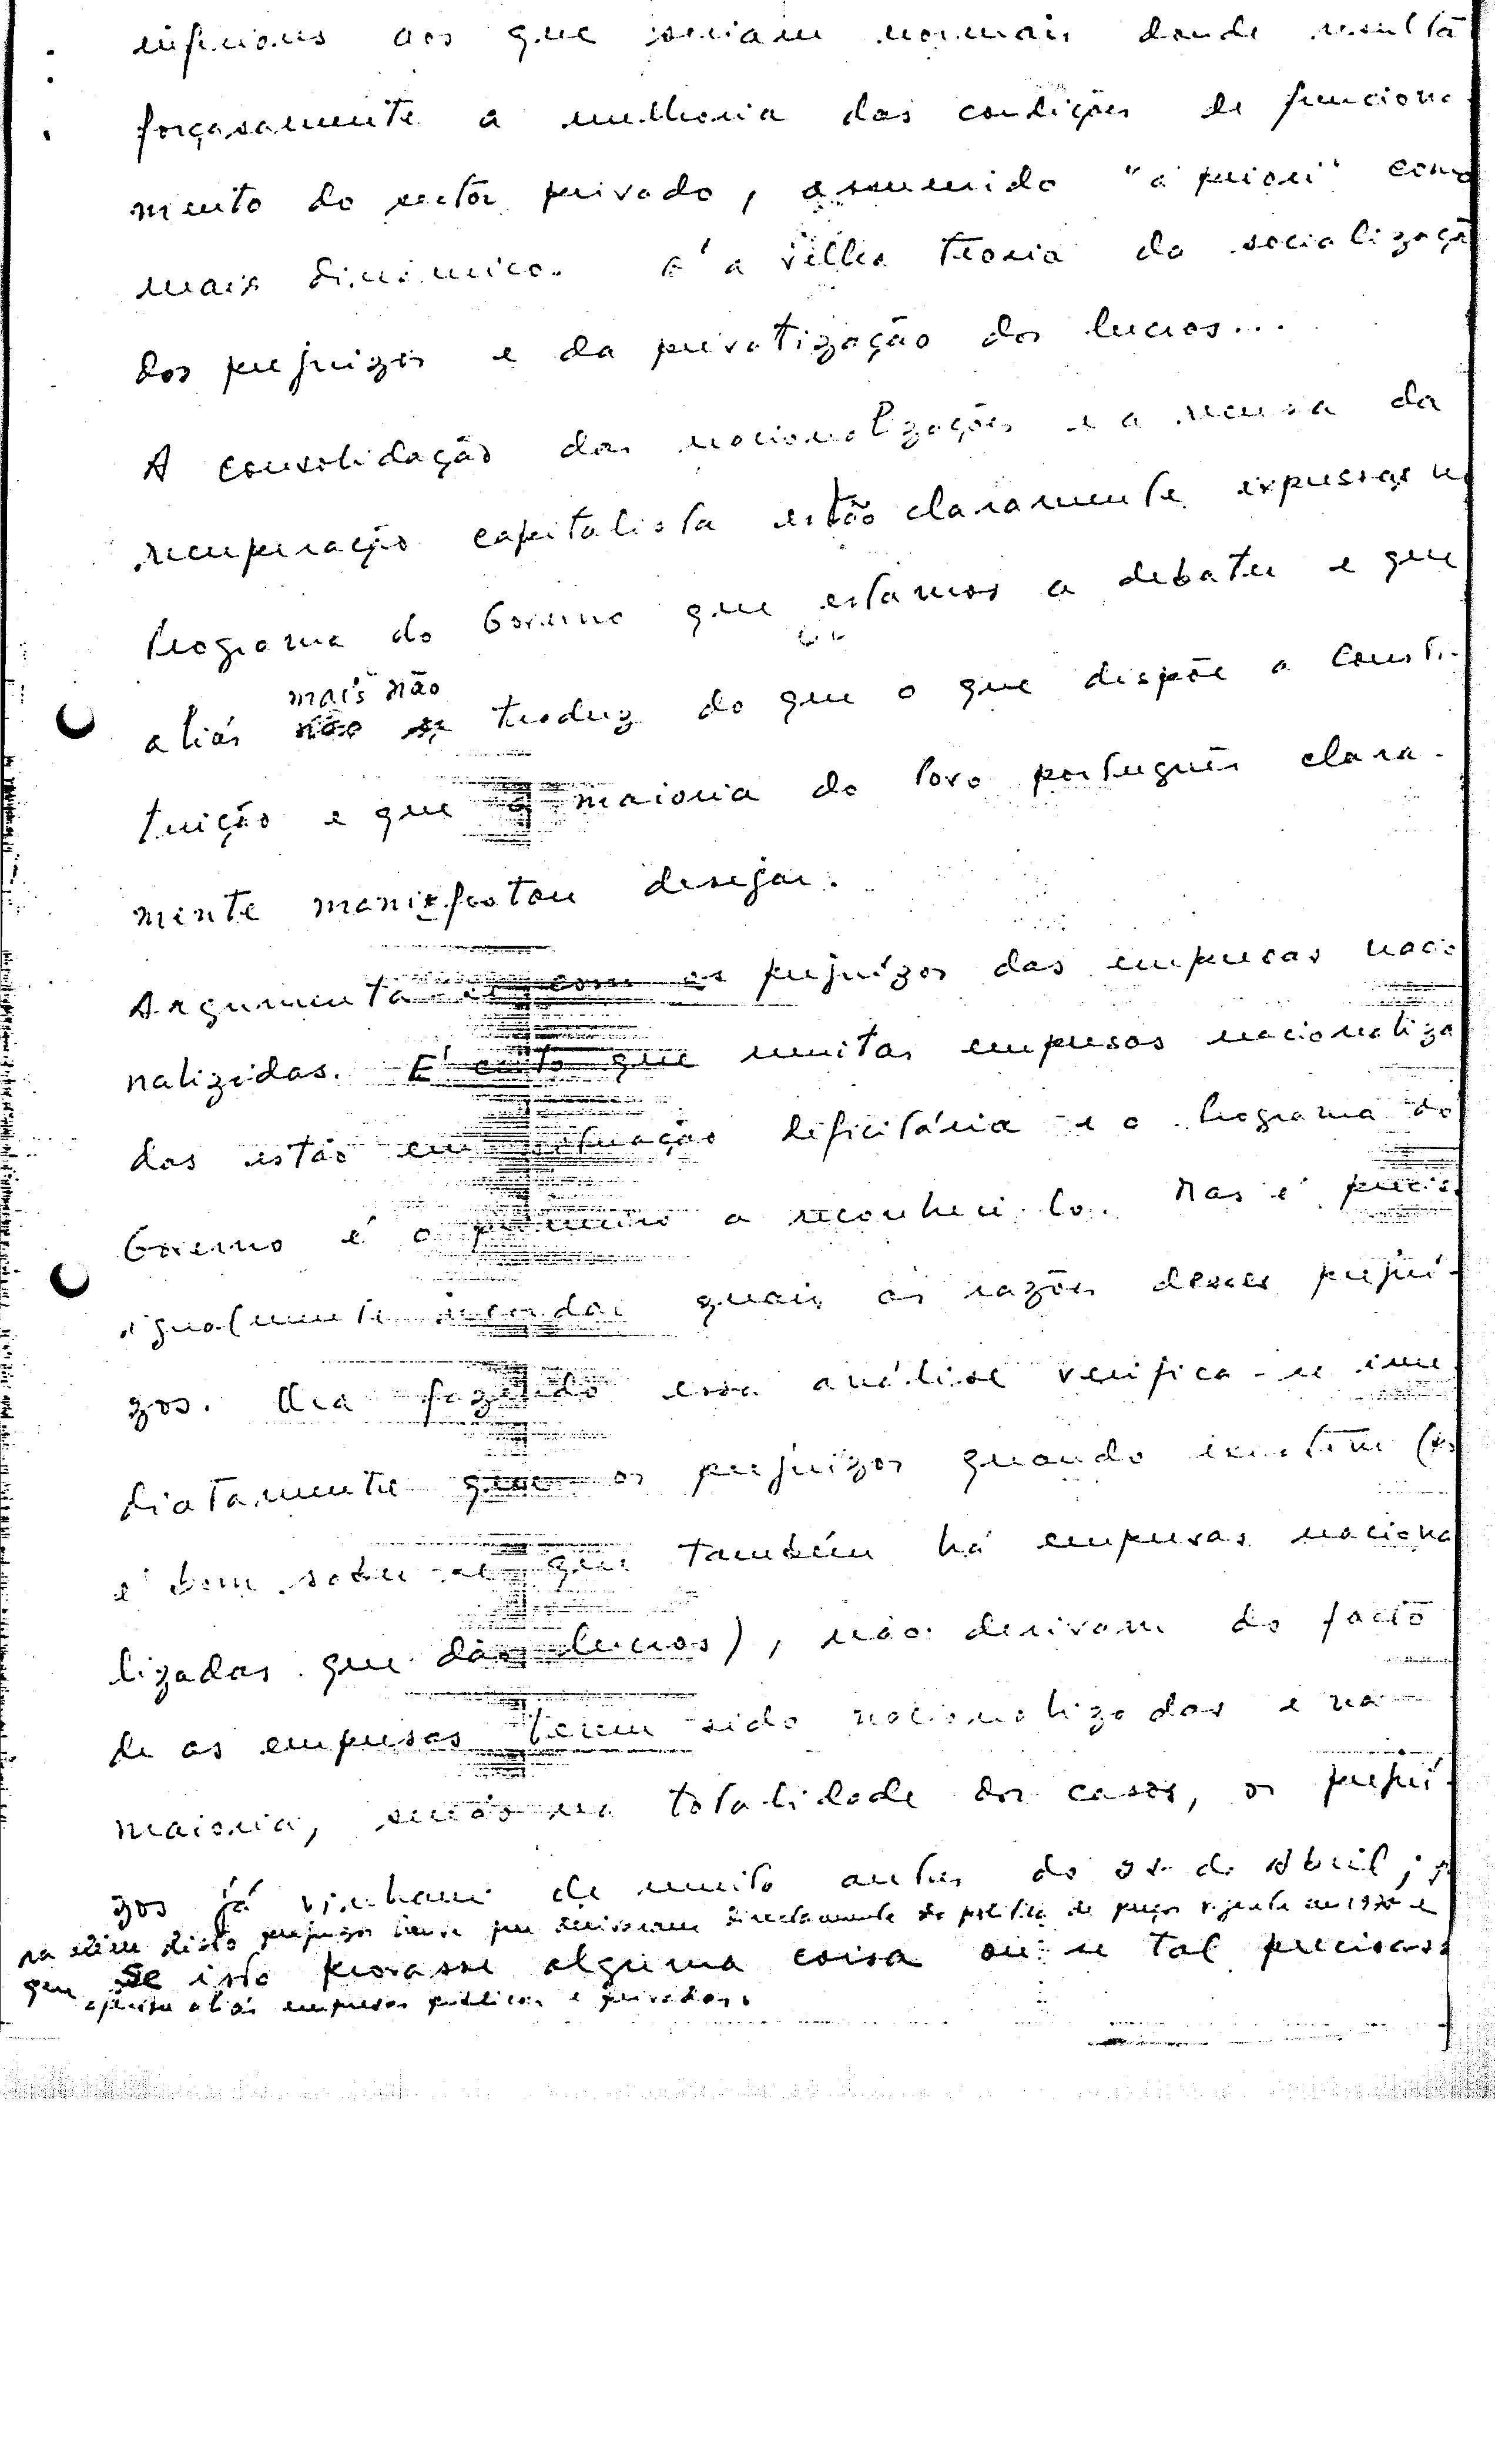 inferiores aos que seriam normais donde resulta
forçosamente a melhoria das condições de funciona
mento do sector privado, assumido "a priori" como
mais dinâmico. É a velha teoria da socialização
dos prejuizos e da privatização dos lucros...
A consolidação das nacionalizações e a recusa da
recuperação capitalista estão claramente expressas n
Programa do Governo que estamos a debater e que
mais não
aliás não se traduz do que o que dispõe a Consti-
tuição e que a maioria do Povo português clara-
mente manifestou desejar.
Argumenta-se com os prejuízos das empresas nacio
nalizadas. É certo que muitas empresas nacionaliza
das estão em situação deficitária e o Programa do
Governo é o primeiro a reconhecê-lo. Mas é preciso
igualmente quais as razões desses prejuí-
zos. Ora fazendo essa análise verifica-se ime
diatamente que os prejuizos quando existem (e
é bom saber-se que também há empresas naciona
lizadas que dão lucros), não derivam do facto
de as empresas terem sido nacionalizadas e na
maioria, senão na totalidade dos casos, os prejuí-
zos já vinham de muito antes do 25 de Abril;
para além disto prejuizos houve que derivaram directamente da politica de preços vigente em 1975 e
que se isto provasse alguma coisa ou se tal precisasse
aliás empresas públicas e privadas.